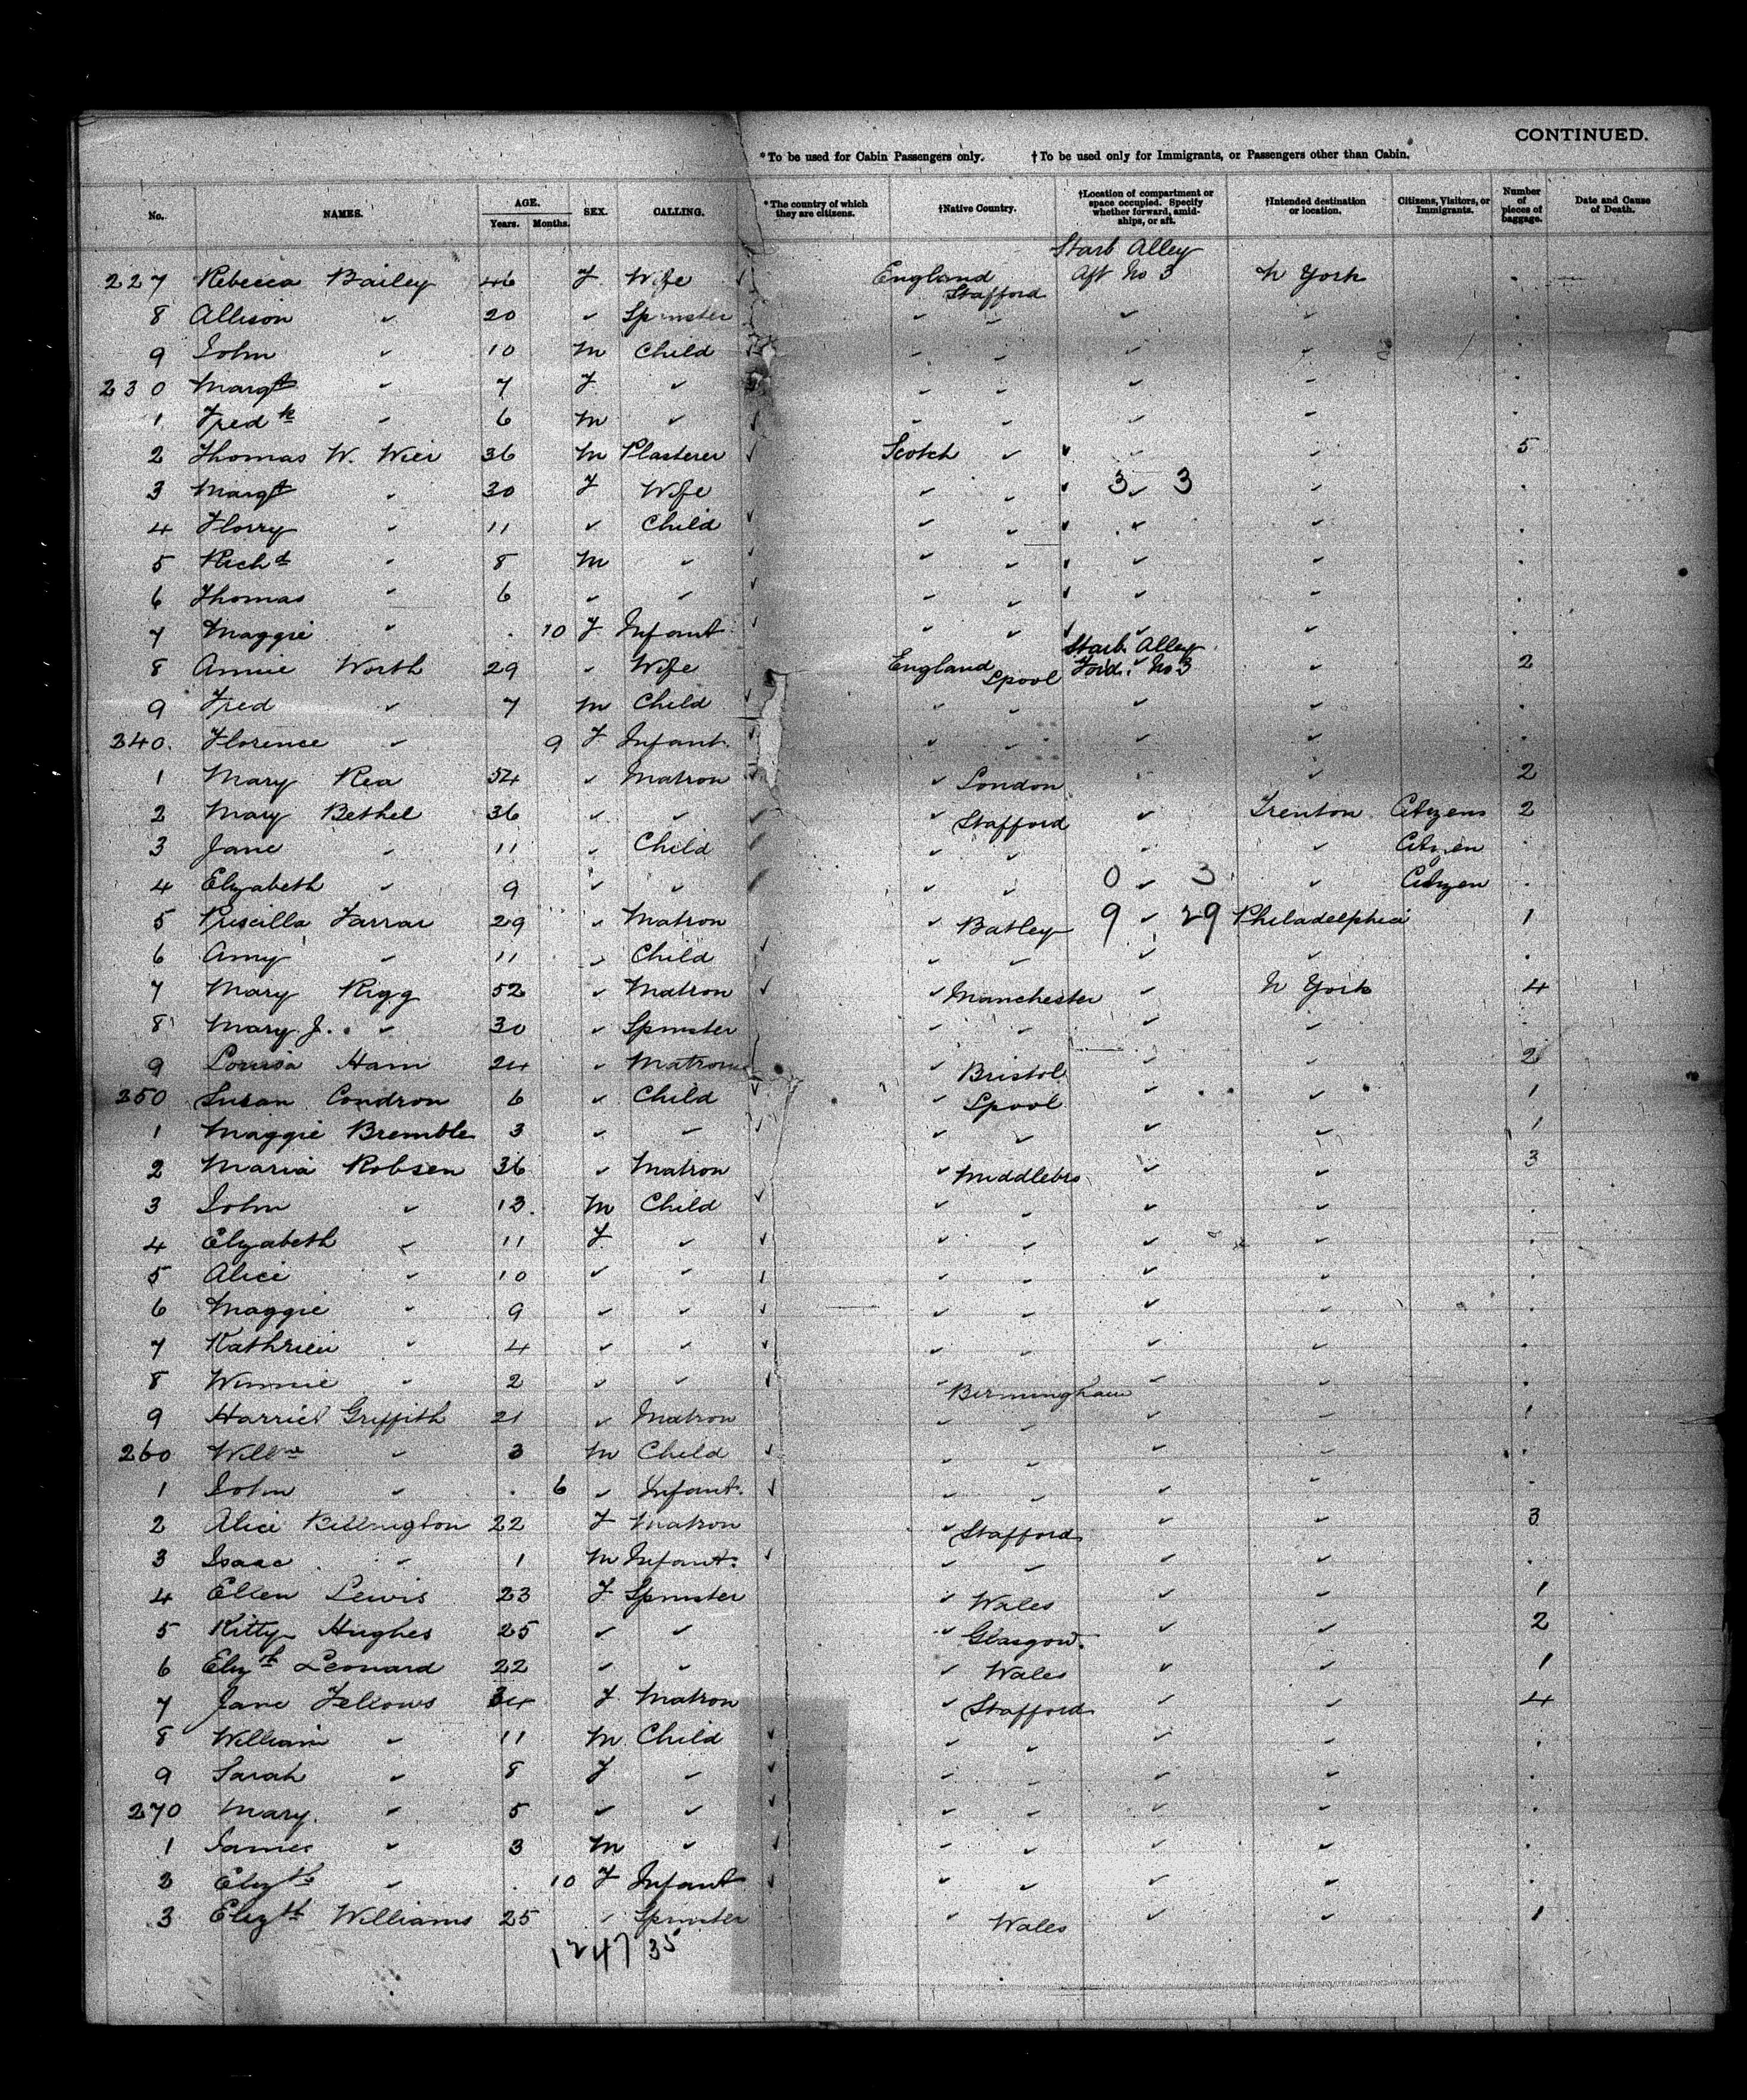 CONTINUED.
*To be used for Cabin Passengers only. †To be used only for Immigrants, or Passengers other than Cabin.
No. NAMES. AGE. Years. Months. SEX. CALLING. *The country of which they are citizens. †Native Country. †Location of compartment or space occupied. Specify whether forward, amidships, or aft. †Intended destination or location. Citizens, Visitors, or Immigrants. Number of pieces of baggage. Date and Cause of Death.
Starb Alley
227 Rebecca Bailey 46 F Wife England Stafford Aft No 3 N York
8 Allison " 20 " Spinster " " " "
9 John " 10 M Child " " " "
230 Margt " 7 F " " " " "
1 Fredk " 6 M " " " " "
2 Thomas W. Wier 36 M Plasterer Scotch " " " 5
3 Margt " 30 F Wife " " 3 " 3 "
4 Florry " 11 " Child " " " "
5 Richd " 8 M " " " " "
6 Thomas " 6 " " " " " "
7 Maggie " 10 F Infant " " " "
Starb Alley
8 Annie Worth 29 " Wife England Lpool Ford. No 3 " 2
9 Fred " 7 M Child " " " "
240. Florence " 9 F Infant. " " " "
1 Mary Rea 54 " Matron " London " " 2
2 Mary Bethel 36 " " " Stafford " Trenton Citizens 2
3 Jane " 11 " Child " " " " Citizen
4 Elizabeth " 9 " " " " 0 " 3 " Citizen
5 Priscilla Farrar 29 " Matron " Batley 9 " 29 Philadelphia 1
6 Amy " 11 " Child " " " "
7 Mary Rigg 52 " Matron " Manchester " N York 4
8 Mary J. " 30 " Spinster " " " "
9 Louisa Ham 24 " Matron " Bristol " " 2
250 Susan Condron 6 " Child " Lpool " " 1
1 Maggie Bremble 3 " " " " " " 1
2 Maria Robsen 36 " Matron " Middlebro " " 3
3 John " 13. M Child " " " "
4 Elizabeth " 11 F " " " " "
5 Alice " 10 " " " " " "
6 Maggie " 9 " " " " " "
7 Kathrien " 4 " " " " " "
8 Winnie " 2 " " " Birmingham " "
9 Harriet Griffith 21 " Matron " " " " 1
260 Willm " 3 M Child " " " "
1 John " 6 " Infant. " " " "
2 Alice Billington 22 F Matron " Stafford " " 3
3 Isaac " 1 M Infant. " " " "
4 Ellen Lewis 23 F Spinster " Wales " " 1
5 Kitty Hughes 25 " " " Glasgow. " " 2
6 Elizth Leonard 22 " " " Wales " " 1
7 Jane Fellows 34 F Matron " Stafford " " 4
8 William " 11 M Child " " " "
9 Sarah " 8 F " " " " "
270 Mary. " 5 " " " " " "
1 James " 3 M " " " " "
2 Elizth " 10 F Infant " " " "
3 Elizth Williams 25 " Spinster " Wales " " 1
1247 35